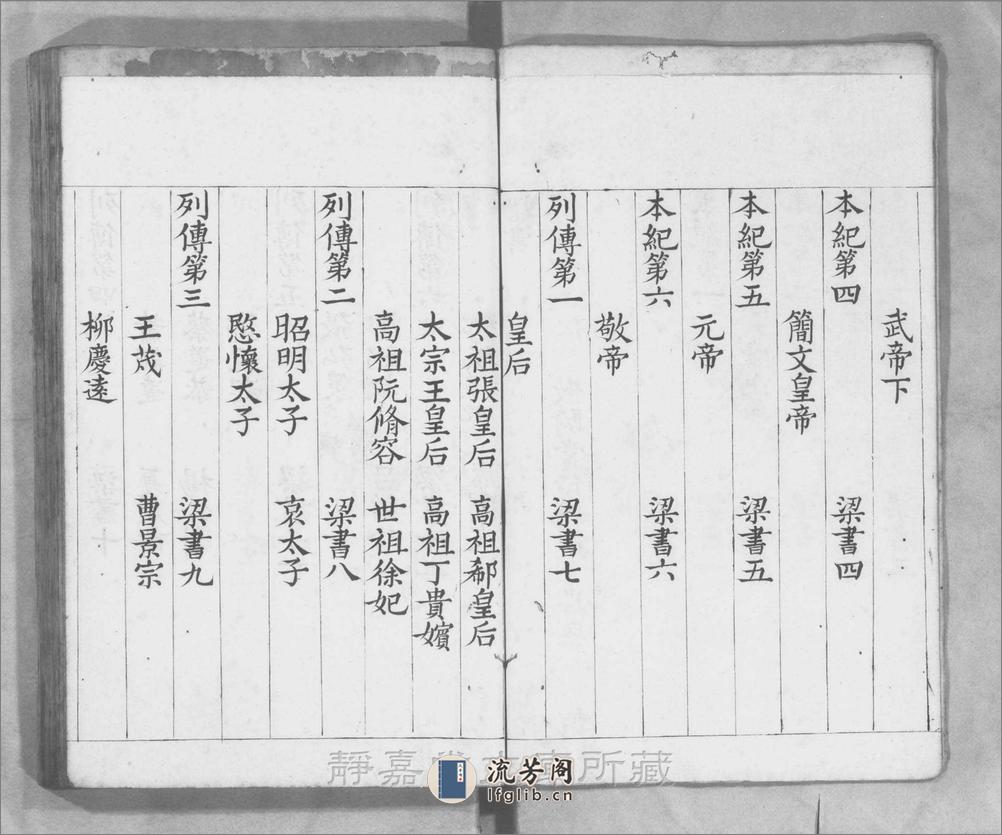 武帝下
本紀第四　梁書四
簡文皇帝
本紀第五　梁書五
元帝
本紀第六　梁書六
敬帝
列傳第一　梁書七
皇后
太祖張皇后　高祖郗皇后
太宗王皇后　高祖丁貴嬪
高祖阮脩容　世祖徐妃
列傳第二　梁書八
昭明太子　哀太子
愍懷太子
列傳第三　梁書九
王茂　曹景宗
柳慶遠
靜嘉堂文庫所藏
流芳阁
lfglib.cn